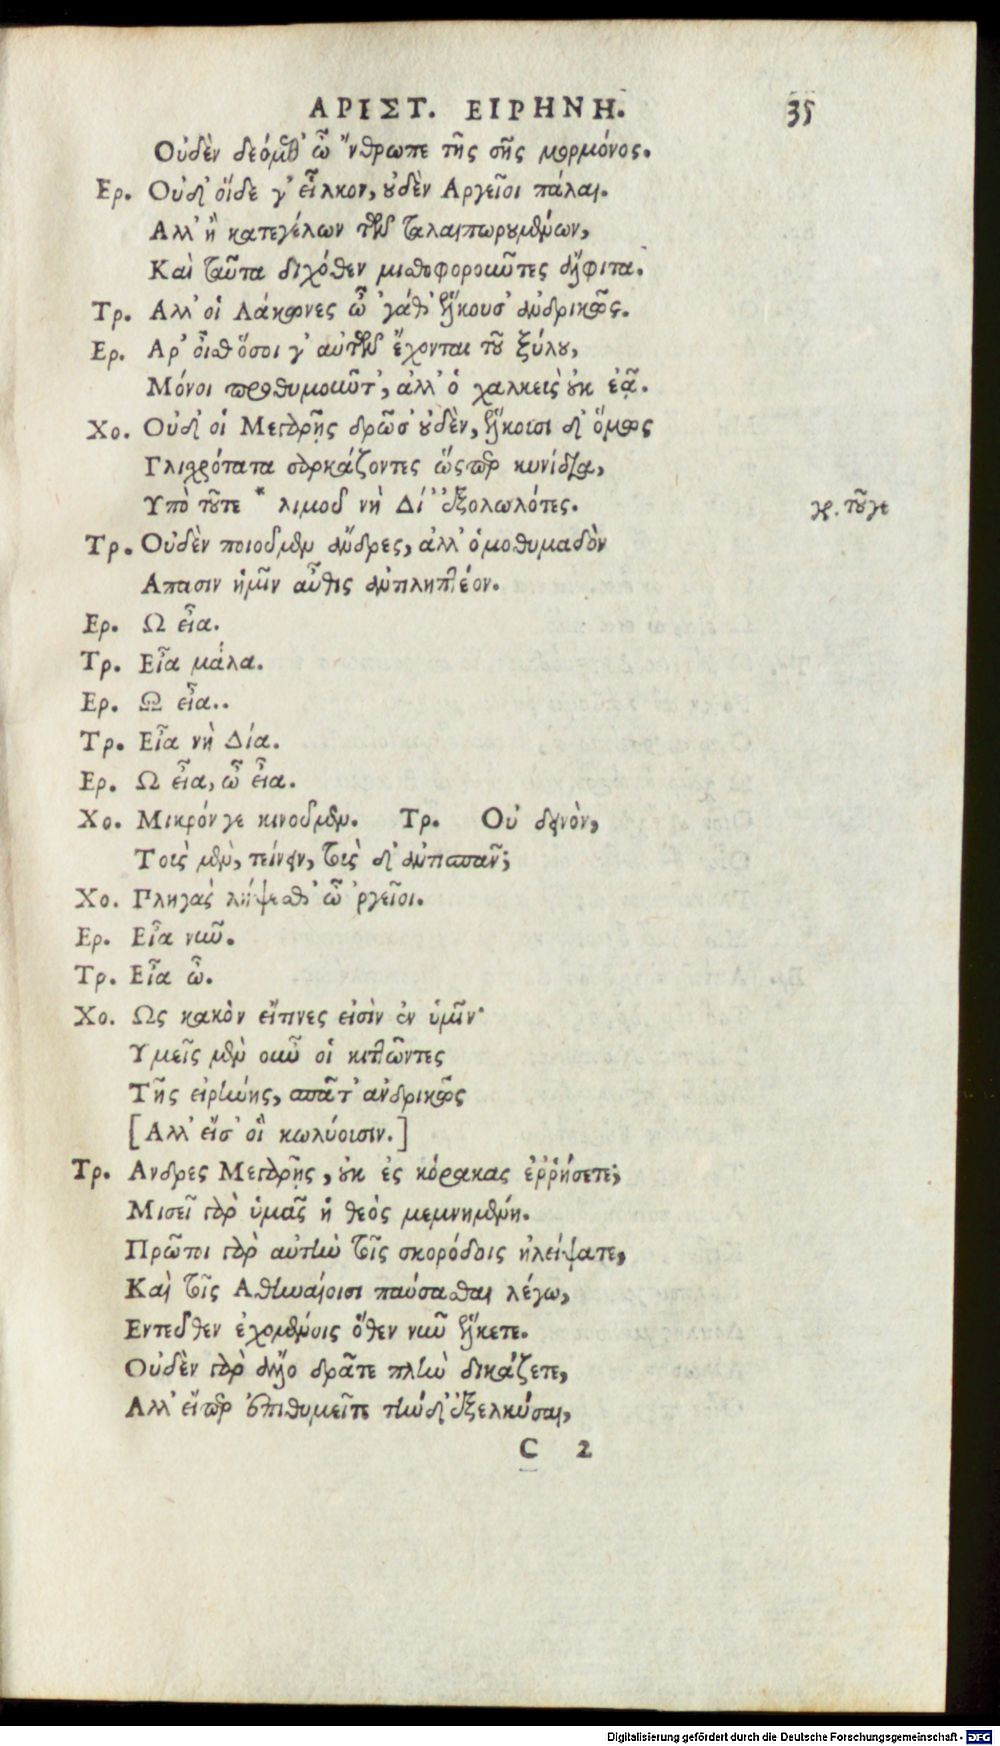 ΑΡΙΣΤ. ΕΙΡΗΝΗ. 35
Οὐδὲν δεόμεθ' ὦ 'νθρωπε τῆς σῆς μορμόνος.
Ερ. Οὐδ' οἵδε γ' εἷλκον, οὐδὲν Αργεῖοι πάλαι.
Αλλ' ἢ κατεγέλων τῶν ταλαιπωρουμένων,
Καὶ ταῦτα διχόθεν μισθοφοροιῶτες ἄλφιτα.
Τρ. Αλλ' οἱ Λάκωνες ὦ 'γάθ' ἕλκουσ' ἀνδρικῶς.
Ερ. Αρ' οἶσθ' ὅσοι γ' αὐτῶν ἔχονται τοῦ ξύλου,
Μόνοι προθυμοιῶτ', ἀλλ' ὁ χαλκεὶς οὐκ ἐᾷ.
Χο. Οὐδ' οἱ Μεγαρῆς δρῶσ' οὐδὲν, ἕλκουσι δ' ὅμως
Γλισχρότατα σαρκάζοντες ὥσπερ κυνίδια,
Υπὸ τοῦτε * λιμοῦ νὴ Δί' ἐξολωλότες. γρ. τοῦγε
Τρ. Οὐδὲν ποιοῦμεν ἄνδρες, ἀλλ' ὁμοθυμαδὸν
Απασιν ἡμῖν αὖθις ἀντιληπτέον.
Ερ. Ω εἶα.
Τρ. Εἶα μάλα.
Ερ. Ω εἶα..
Τρ. Εἶα νὴ Δία.
Ερ. Ω εἶα, ὦ εἶα.
Χο. Μικρόν γε κινοῦμεν. Τρ. Οὐ δεινὸν,
Τοὶς μὲν, τείνειν, τοὶς δ' ἀντισπᾶν;
Χο. Πληγὰς λήψεσθ' ὦ 'ργεῖοι.
Ερ. Εἶα νῦν.
Τρ. Εἶα ὦ.
Χο. Ως κακὸν εἴτινες εἰσὶν ἐν ὑμῖν·
Υμεῖς μὲν οὖν οἱ κιττῶντες
Τῆς εἰρήνης, σπᾶτ' ἀνδρικῶς
[Αλλ' εἴσ' οἳ κωλύουσιν.]
Τρ. Ανδρες Μεγαρῆς, οὐκ ἐς κόρακας ἐῤῥήσετε;
Μισεῖ γὰρ ὑμᾶς ἡ θεὸς μεμνημένη.
Πρῶτοι γὰρ αὐτὴν τοῖς σκορόδοις ἠλείψατε,
Καὶ τοῖς Αθηναίοισι παύσασθαι λέγω,
Εντεῦθεν ἐχομένοις ὅθεν νῦν ἕλκετε.
Οὐδὲν γὰρ ἄλλο δρᾶτε πλὴν δικάζετε,
Αλλ' εἴπερ ἐπιθυμεῖτε τήνδ' ἐξελκύσαι,
C 2
Digitalisierung gefördert durch die Deutsche Forschungsgemeinschaft - DFG